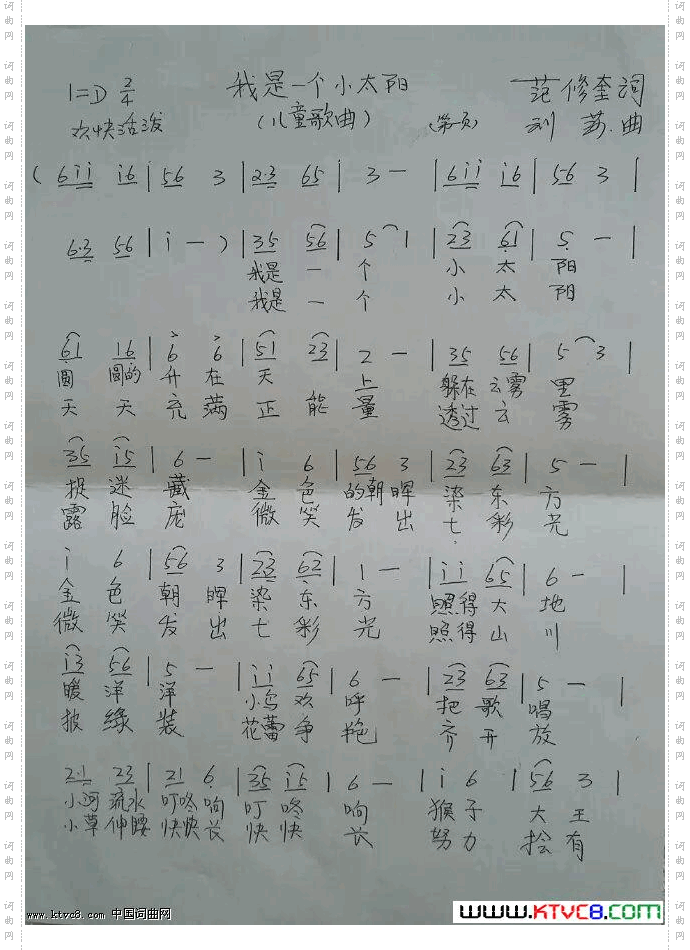 我是一个小太阳
1=D 2/4
范修奎词
欢快活泼
(儿童歌曲)
(第一页)
刘 荔.曲
( 6 i i i 6 | 5 6 3 | 2·3 6 5 | 3 — | 6 i i i 6 | 5 6 3 |
6·3 5 6 | i — ) | 3 5 5 6 | 5 1 | 2 3 6 1 | 5 — |
我是 一 个 小 太 阳
我是 一 个 小 太 阳
6 1 1 6 | 6 6 | 5 1 2 3 | 2 — | 3 5 5 6 | 5 3 |
圆 圆的 升 在 天 上 躲在 云雾 里
天 天 充 满 正 能 量 透过 云 雾
3 5 i 5 | 6 — | i 6 | 5 6 3 | 2 3 6 3 | 5 — |
捉 迷 藏 金 色 的朝 晖 染 东 方
露 脸 庞 微 笑 发 出 七 彩 光
i 6 | 5 6 3 | 2 3 6 2 | 1 — | i i 6 5 | 6 — |
金 色 朝 晖 染 东 方 照得 大 地
微 笑 发 出 七 彩 光 照得 大 山 川
i 3 5 6 | 5 — | i i 6 5 | 6 — | 2 3 6 3 | 5 — |
暖 洋 洋 小鸟 欢 呼 把 歌 唱
披 绿 装 花蕾 争 艳 齐 开 放
2·1 2 3 | 2 1 6 | 3 5 i 5 | 6 — | i 6 | 5 6 3 |
小河 流水 叮咚 响 叮 咚 响 猴 子 大 王
小草 伸腰 快快 长 快 快 长 努 力 会 有
www.ktvc8.com 中国词曲网
WWW.KTVC8.COM
词曲网